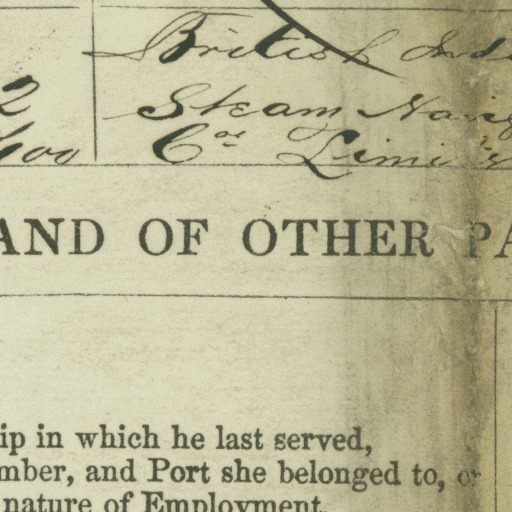 British Indi
2 Steam Navig
600 Cor Limi
AND OF OTHER PA
ip in which he last served,
mber, and Port she belonged to, or
nature of Employment.